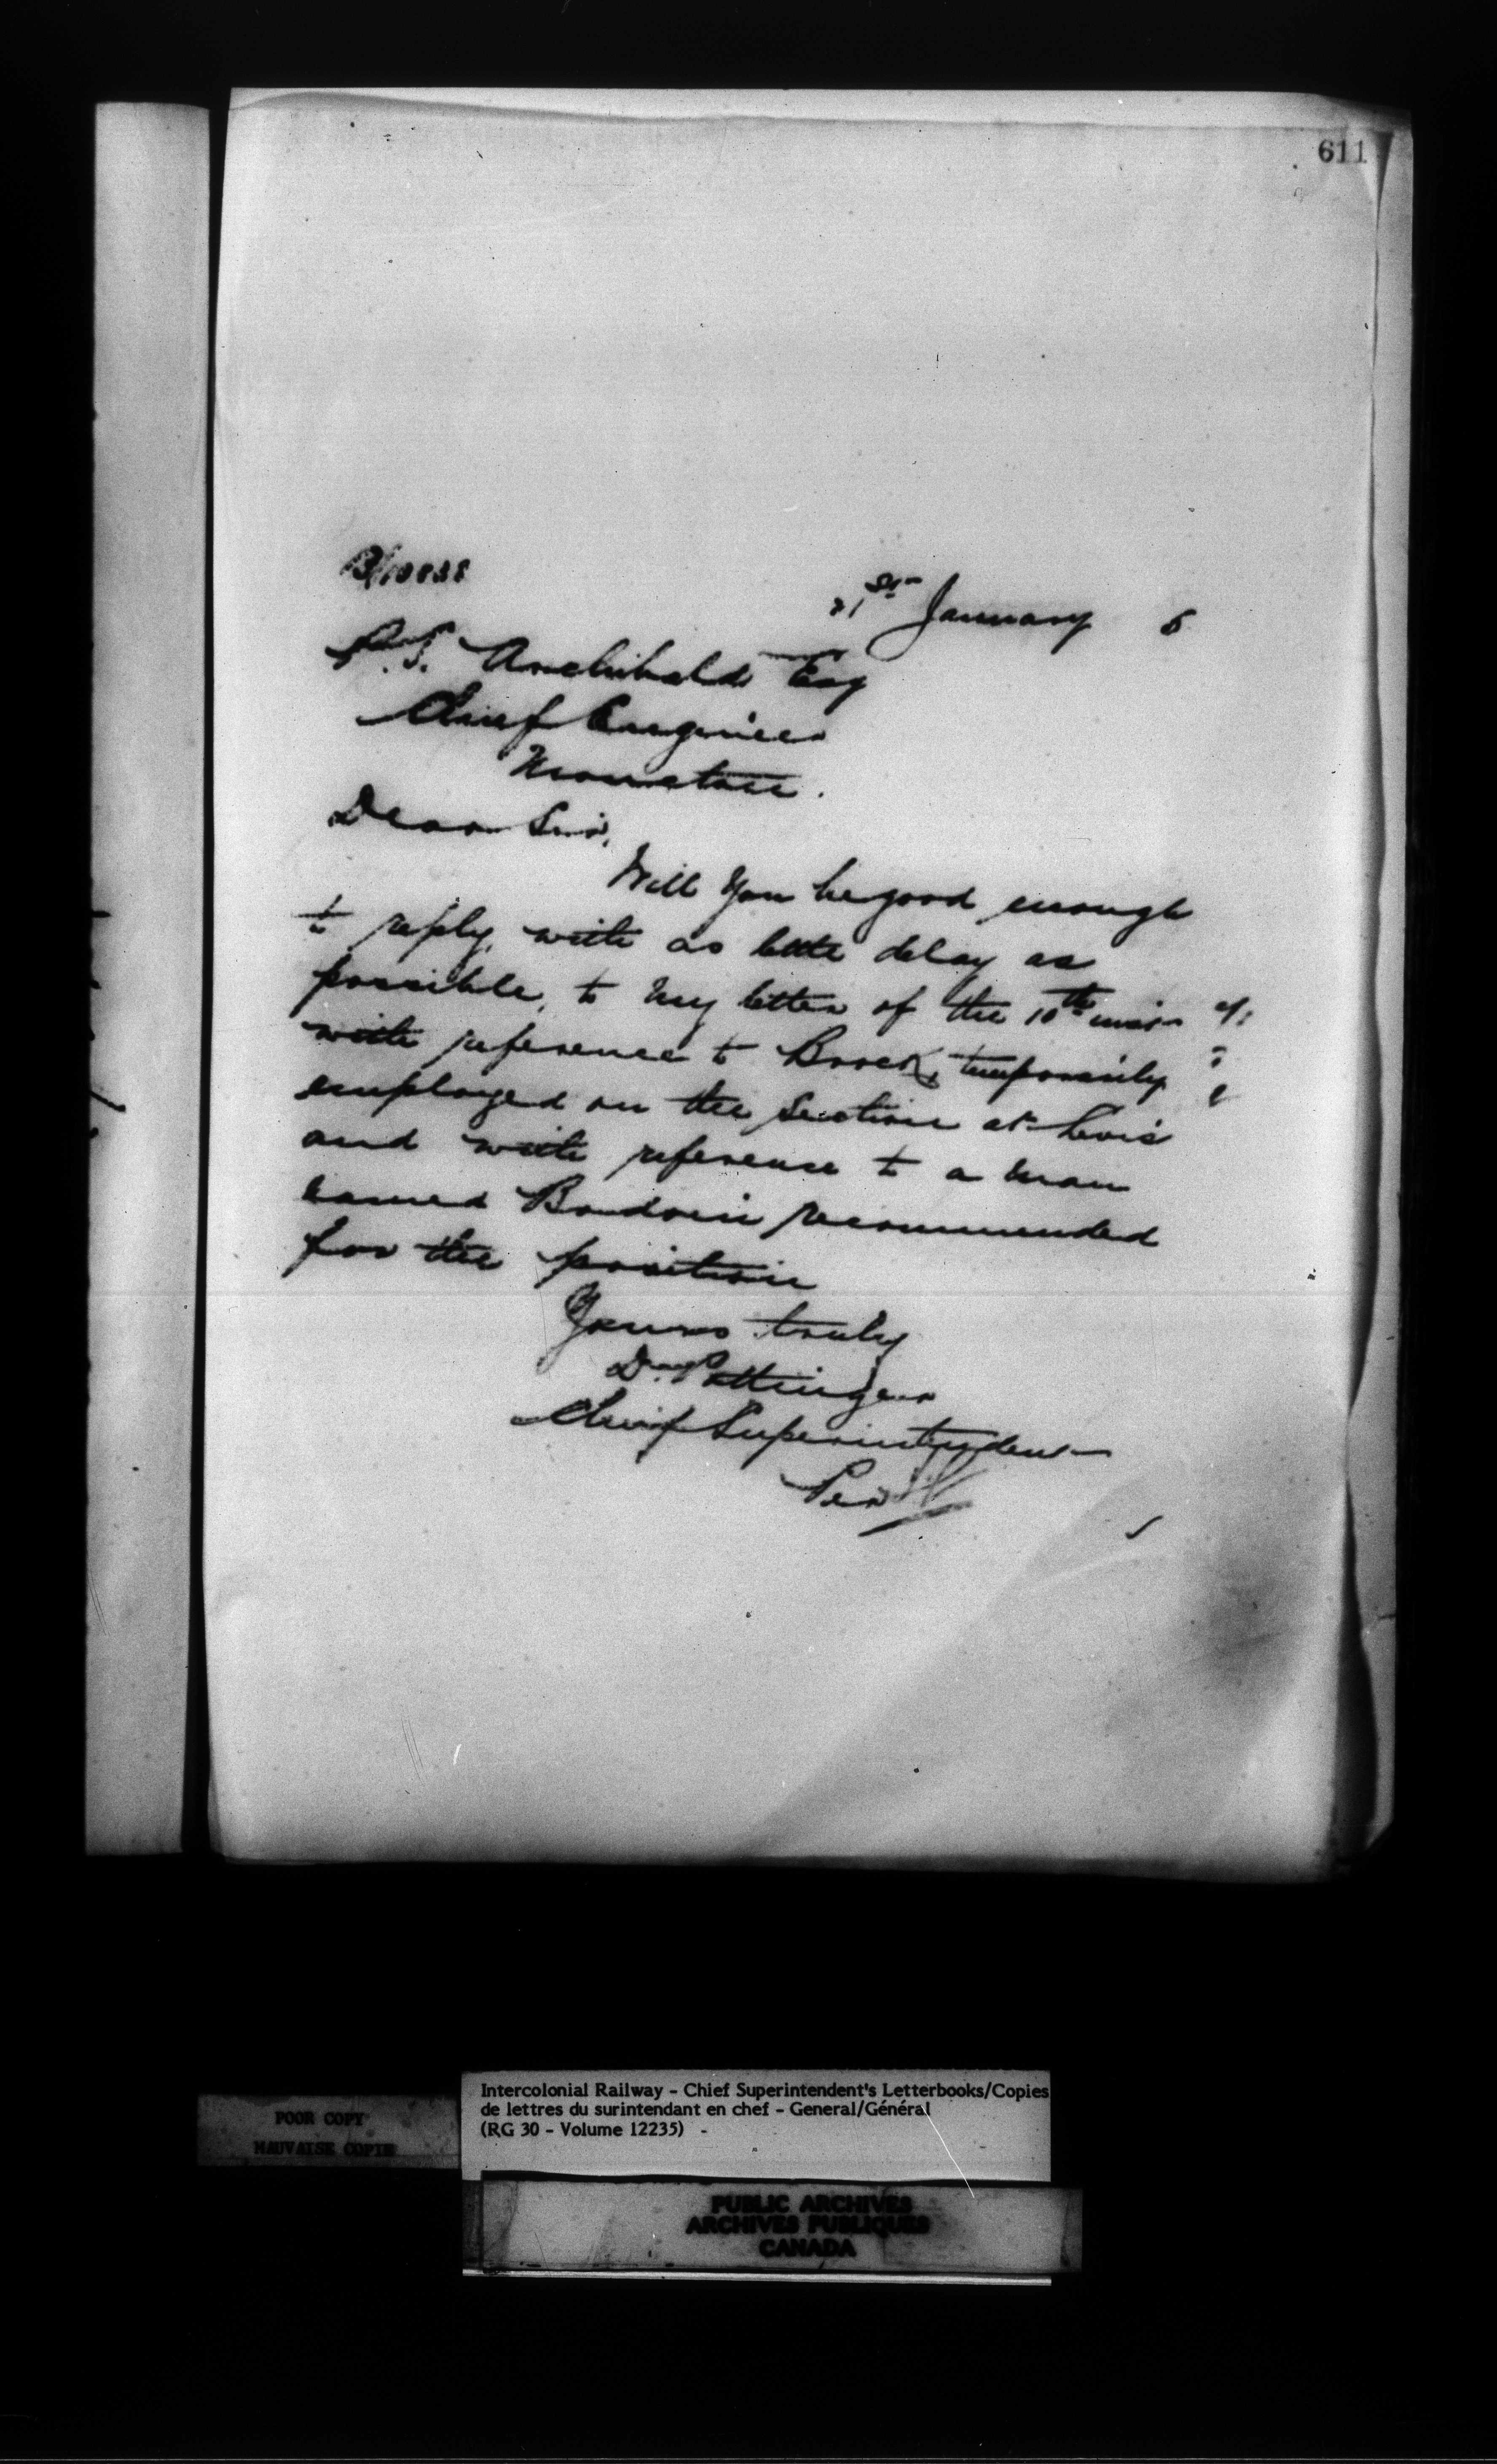 611
21st January 6
P.S. Archibald Esq
Chief Engineer
Moncton.
Dear Sir,
Will you be good enough
to reply, with as little delay as
possible, to my letter of the 10th inst
with reference to Brock, temporarily
employed on the section at Levis
and with reference to a man
named Baudoin recommended
for the position
Yours truly
D. Pottinger
Chief Superintendent
Per
Intercolonial Railway - Chief Superintendent's Letterbooks/Copies
de lettres du surintendant en chef - General/Général
(RG 30 - Volume 12235) -
POOR COPY
MAUVAISE COPIE
PUBLIC ARCHIVES
ARCHIVES PUBLIQUES
CANADA